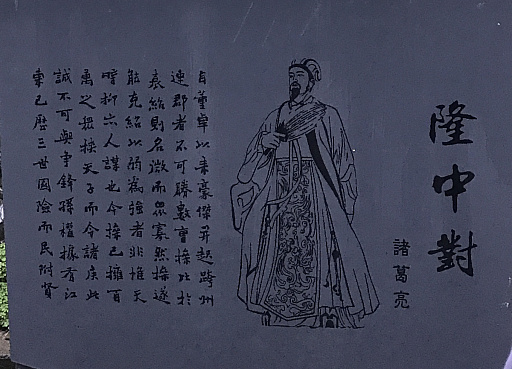 隆中對
諸葛亮
自董卓以来豪傑并起跨州
連郡者不可勝數曹操比於
袁紹則名微而眾寡然操遂
能克紹以弱為強者非惟天
時抑亦人謀也今操已擁百
萬之眾挾天子而令諸侯此
誠不可與爭鋒孫權據有江
東已歷三世國險而民附賢